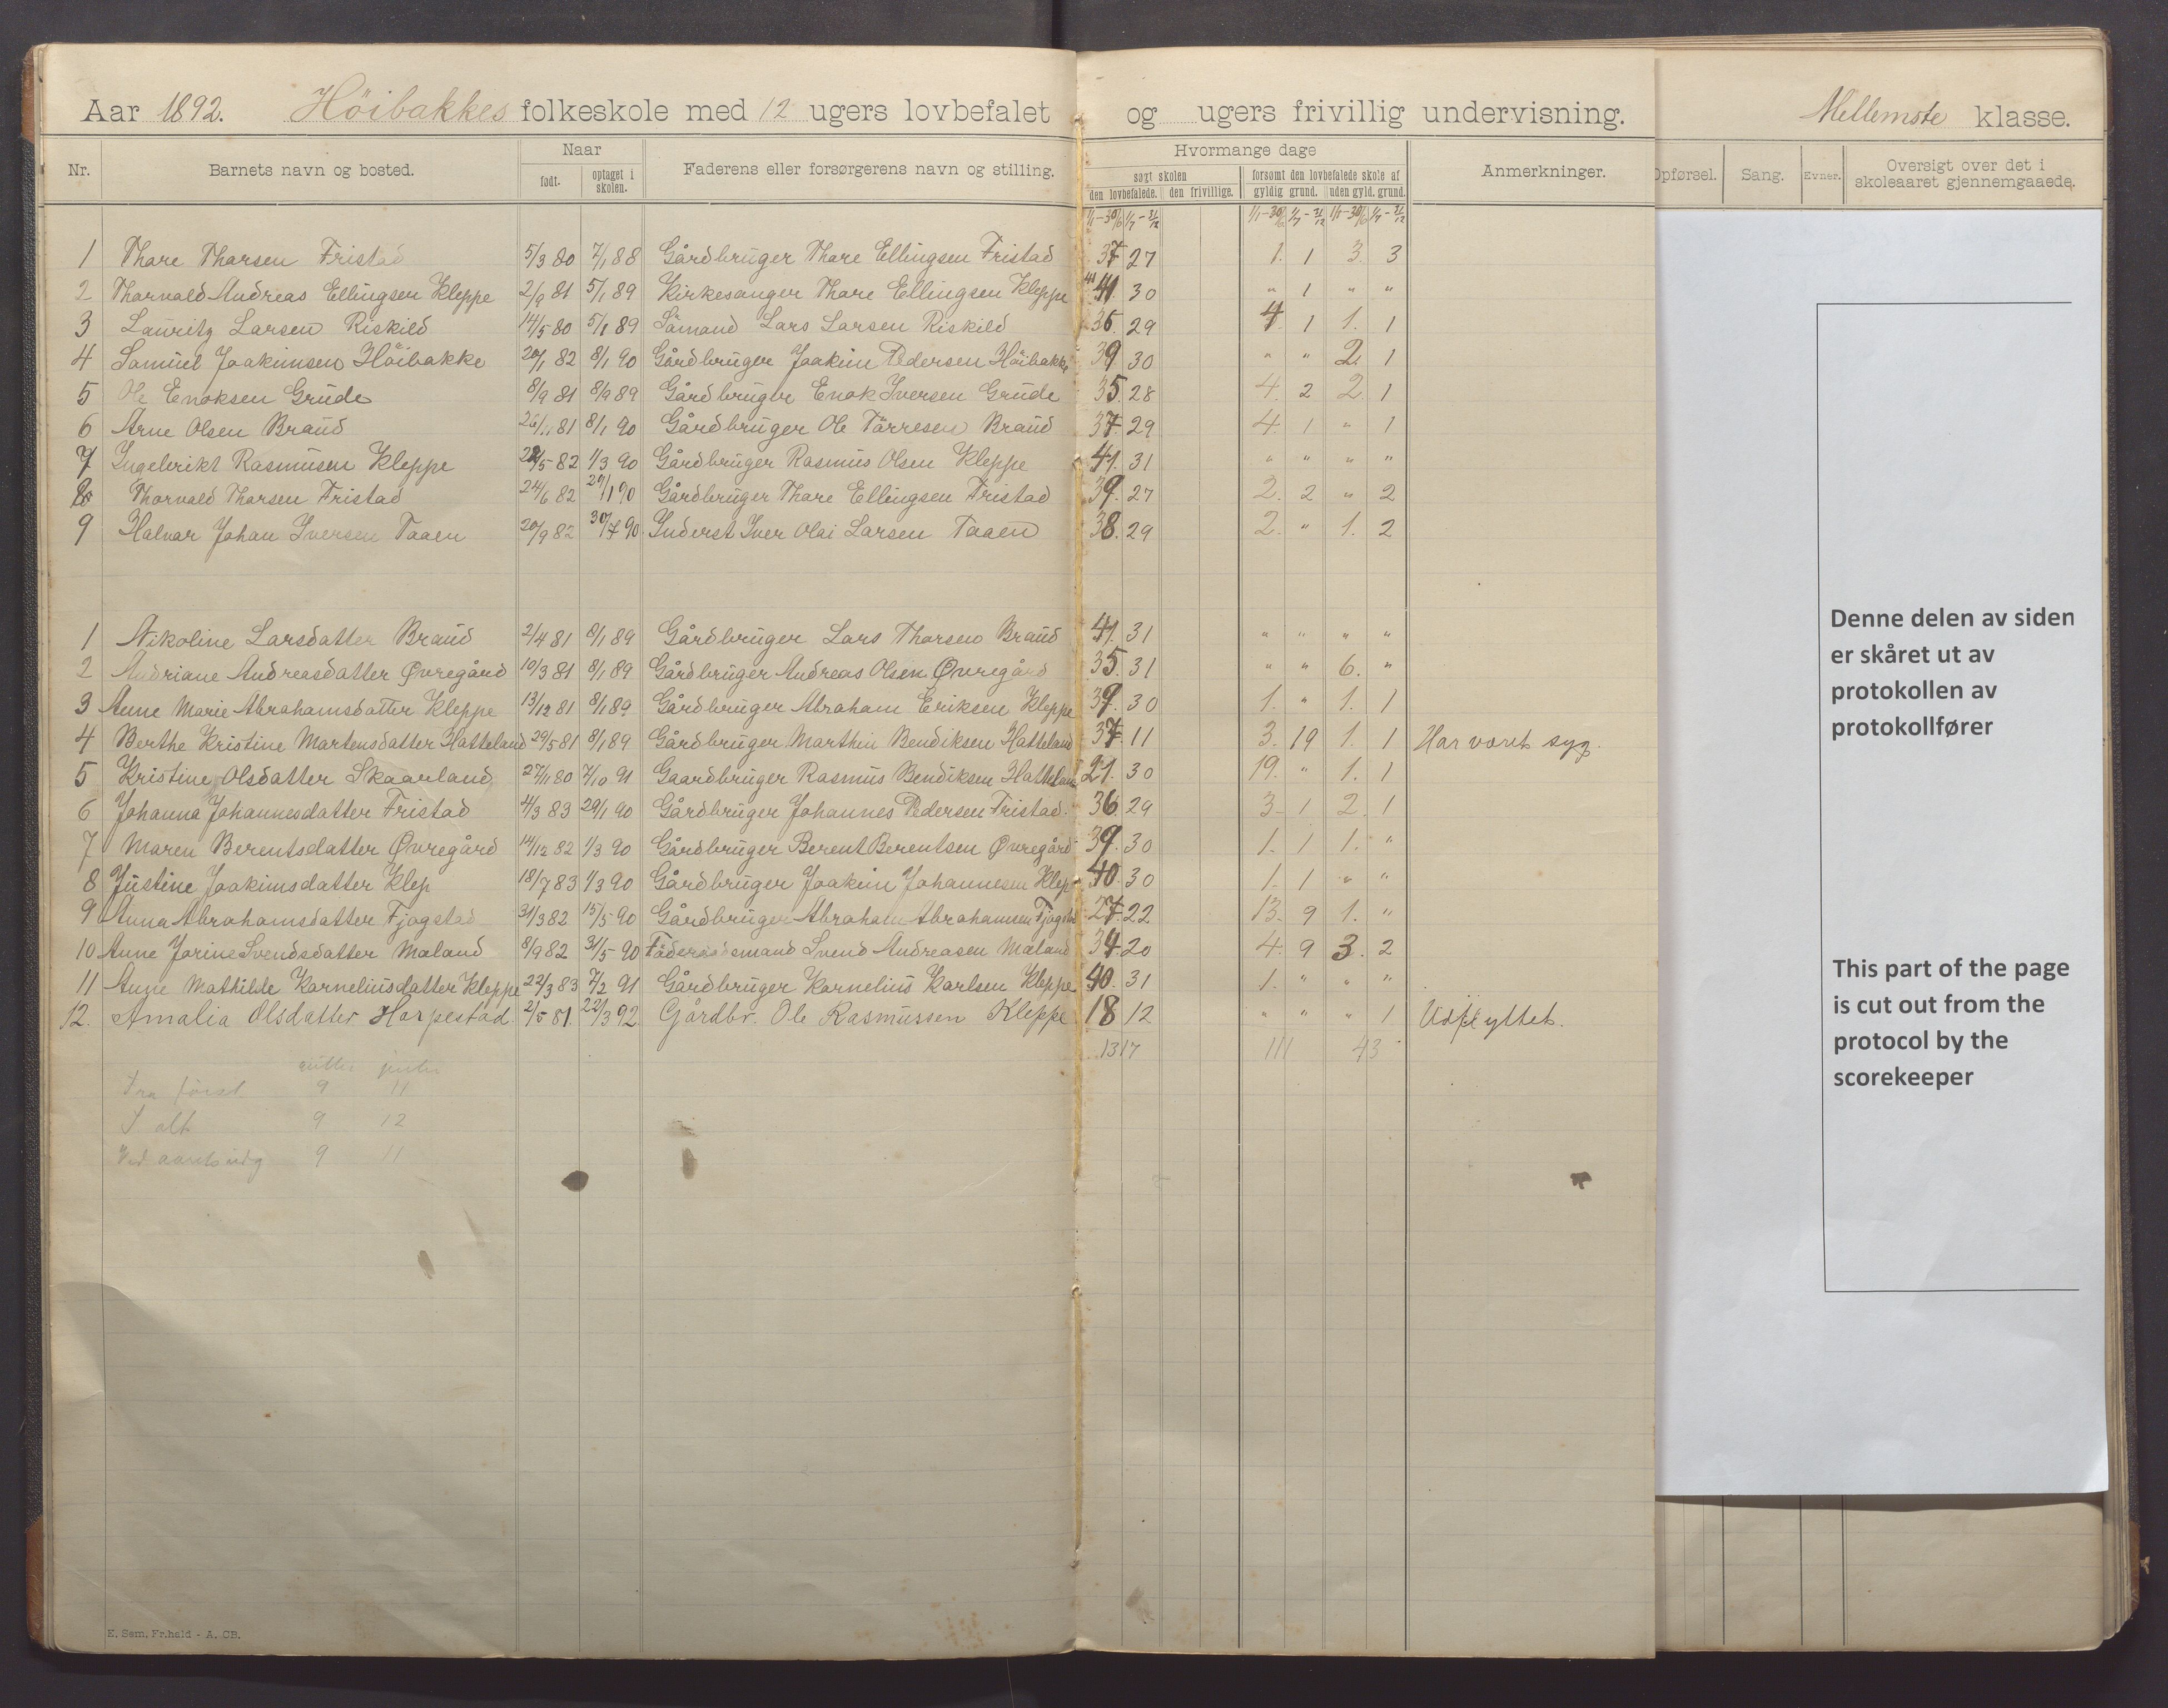 Aar 1892. Höibakkes folkeskole med 12 ugers lovbefalet og ugers frivillig undervisning. Mellemste klasse.
Nr. Barnets navn og bosted. Naar født. optaget i skolen. Faderens eller forsørgerens navn og stilling. Hvormange dage søgt skolen den lovbefalede. den frivillige. forsømt den lovbefalede skole af gyldig grund. uden gyld. grund. Anmerkninger. Opførsel. Sang. Evner. Oversigt over det i skoleaaret gjennemgaaede.
1/1-30/6 1/7-31/12 1/1-30/6 1/7-31/12 1/1-30/6 1/7-31/12
1 Thore Thorsen Fristad 5/3 80 7/1 88 Gårdbruger Thore Ellingsen Fristad 37 27 1. 1 3. 3
2 Thorvald Andreas Ellingsen Kleppe 2/9 81 5/1 89 Kirkesanger Thore Ellingsen Kleppe 41 30 " 1 " "
3 Lauritz Larsen Riskild 14/5 80 5/1 89 Sömand Lars Larsen Riskild 36. 29 4. 1 1. 1
4 Samuel Joakimsen Höibakke 20/1 82 8/1 90 Gårdbruger Joakim Pedersen Höibakke 39 30 " " 2. 1
5 Ole Enoksen Grude 8/9 81 8/9 89 Gårdbruger Enok Iversen Grude 35. 28 4. 2 2. 1
6 Arne Olsen Braud 26/11 81 8/1 90 Gårdbruger Ole Törresen Braud 37. 29 4. 1 " 1
7 Ingebrikt Rasmusen Kleppe 28/5 82 1/3 90 Gårdbruger Rasmus Olsen Kleppe 41. 31 " " " "
8 Thorvald Thorsen Fristad 24/6 82 29/1 90 Gårdbruger Thore Ellingsen Fristad 39. 27 2. 2 " 2
9 Halvar Johan Iversen Taaen 20/9 82 30/7 90 Inderst Iver Olai Larsen Taaen 38. 29 2. " 1. 2
1 Nikoline Larsdatter Braud 2/4 81 8/1 89 Gårdbruger Lars Thorsen Braud 41. 31 " " " "
2 Andriane Andreasdatter Øvregård 10/3 81 8/1 89 Gårdbruger Andreas Olsen Øvregård 35. 31 " " 6. "
3 Anne Marie Abrahamsdatter Kleppe 13/12 81 8/1 89 Gårdbruger Abraham Eriksen Kleppe 39. 30 1. " 1. 1
4 Berthe Kristine Martensdatter Hatteland 29/5 81 8/1 89 Gårdbruger Marthin Bendiksen Hatteland 37 11 3. 19 1. 1 Har været syg.
5 Kristine Olsdatter Skaarland 27/11 80 7/10 91 Gaardbruger Rasmus Bendiksen Hatteland 21. 30 19. " 1. 1
6 Johanna Johannesdatter Fristad 4/3 83 29/1 90 Gårdbruger Johannes Pedersen Fristad. 36. 29 3 1 2. 1
7 Maren Berentsdatter Øvregård 14/12 82 1/3 90 Gårdbruger Berent Berentsen Øvregård 39. 30 1. 1 1. "
8 Justine Joakimsdatter Klep 18/7 83 1/3 90 Gårdbruger Joakim Johannesen Klep 40. 30 1. 1 " "
9 Anna Abrahamsdatter Fjogstad 31/3 82 15/5 90 Gårdbruger Abraham Abrahamsen Fjogstad 27. 22 13. 9 1. "
10 Anne Jorine Svendsdatter Maland 8/9 82 31/5 90 Föderådsmand Svend Andreasen Maland 34. 20 4. 9 3. 2
11 Anne Mathilde Karneliusdatter Kleppe 22/3 83 7/2 91 Gårdbruger Karnelius Karlsen Kleppe 40. 31 1. " " "
12. Amalia Olsdatter Horpestad. 2/5 81. 22/3 92 Gårdbr. Ole Rasmussen Kleppe 18 12 " " " 1 Udflyttet.
1317 111 43
gutter piker
Fra först 9 11
I alt 9 12
Ved 9 11
Denne delen av siden
er skåret ut av
protokollen av
protokollfører
This part of the page
is cut out from the
protocol by the
scorekeeper
E. Sem, Fr.hald - A. CB.